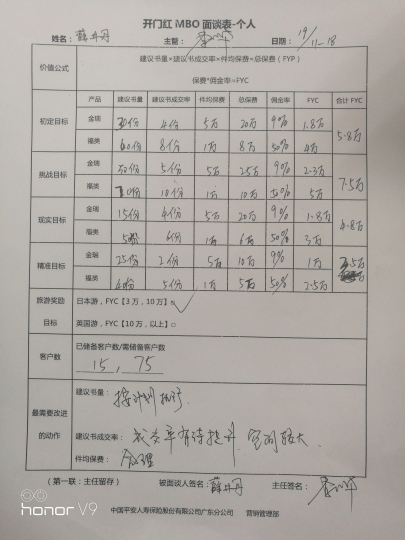 开门红 MBO 面谈表-个人
姓名： 薛丹丹 主管： 日期： 19/11-18
价值公式 建议书量×建议书成交率×件均保费=总保费（FYP）
保费*佣金率=FYC
产品 建议书量 建议书成交率 件均保费 总保费 佣金率 FYC 合计 FYC
初定目标 金瑞 30份 4份 5万 20万 9% 1.8万 5.8万
福类 60份 8份 1万 8万 50% 4万
挑战目标 金瑞 5份 5万 25万 9% 2.3万 7.5万
福类 10份 1万 10万 50% 5万
现实目标 金瑞 15份 4份 5万 20万 9% 1.8万 4.8万
福类 6份 1万 6万 50% 3万
精准目标 金瑞 25份 2份 5万 10万 9% 1万 3.5万
福类 40份 5份 1万 5万 50% 2.5万
旅游奖励 日本游，FYC【3 万，10 万】 ✓
目标 英国游，FYC【10 万，以上】○
客户数 已储备客户数/需储备客户数
15，75
最需要改进的动作 建议书量： 按计划执行
建议书成交率： 成交率有待提升，空间较大
件均保费： 合理
（第一联：主任留存） 被面谈人签名： 薛丹丹 主任签名：
中国平安人寿保险股份有限公司广东分公司 营销管理部
honor V9